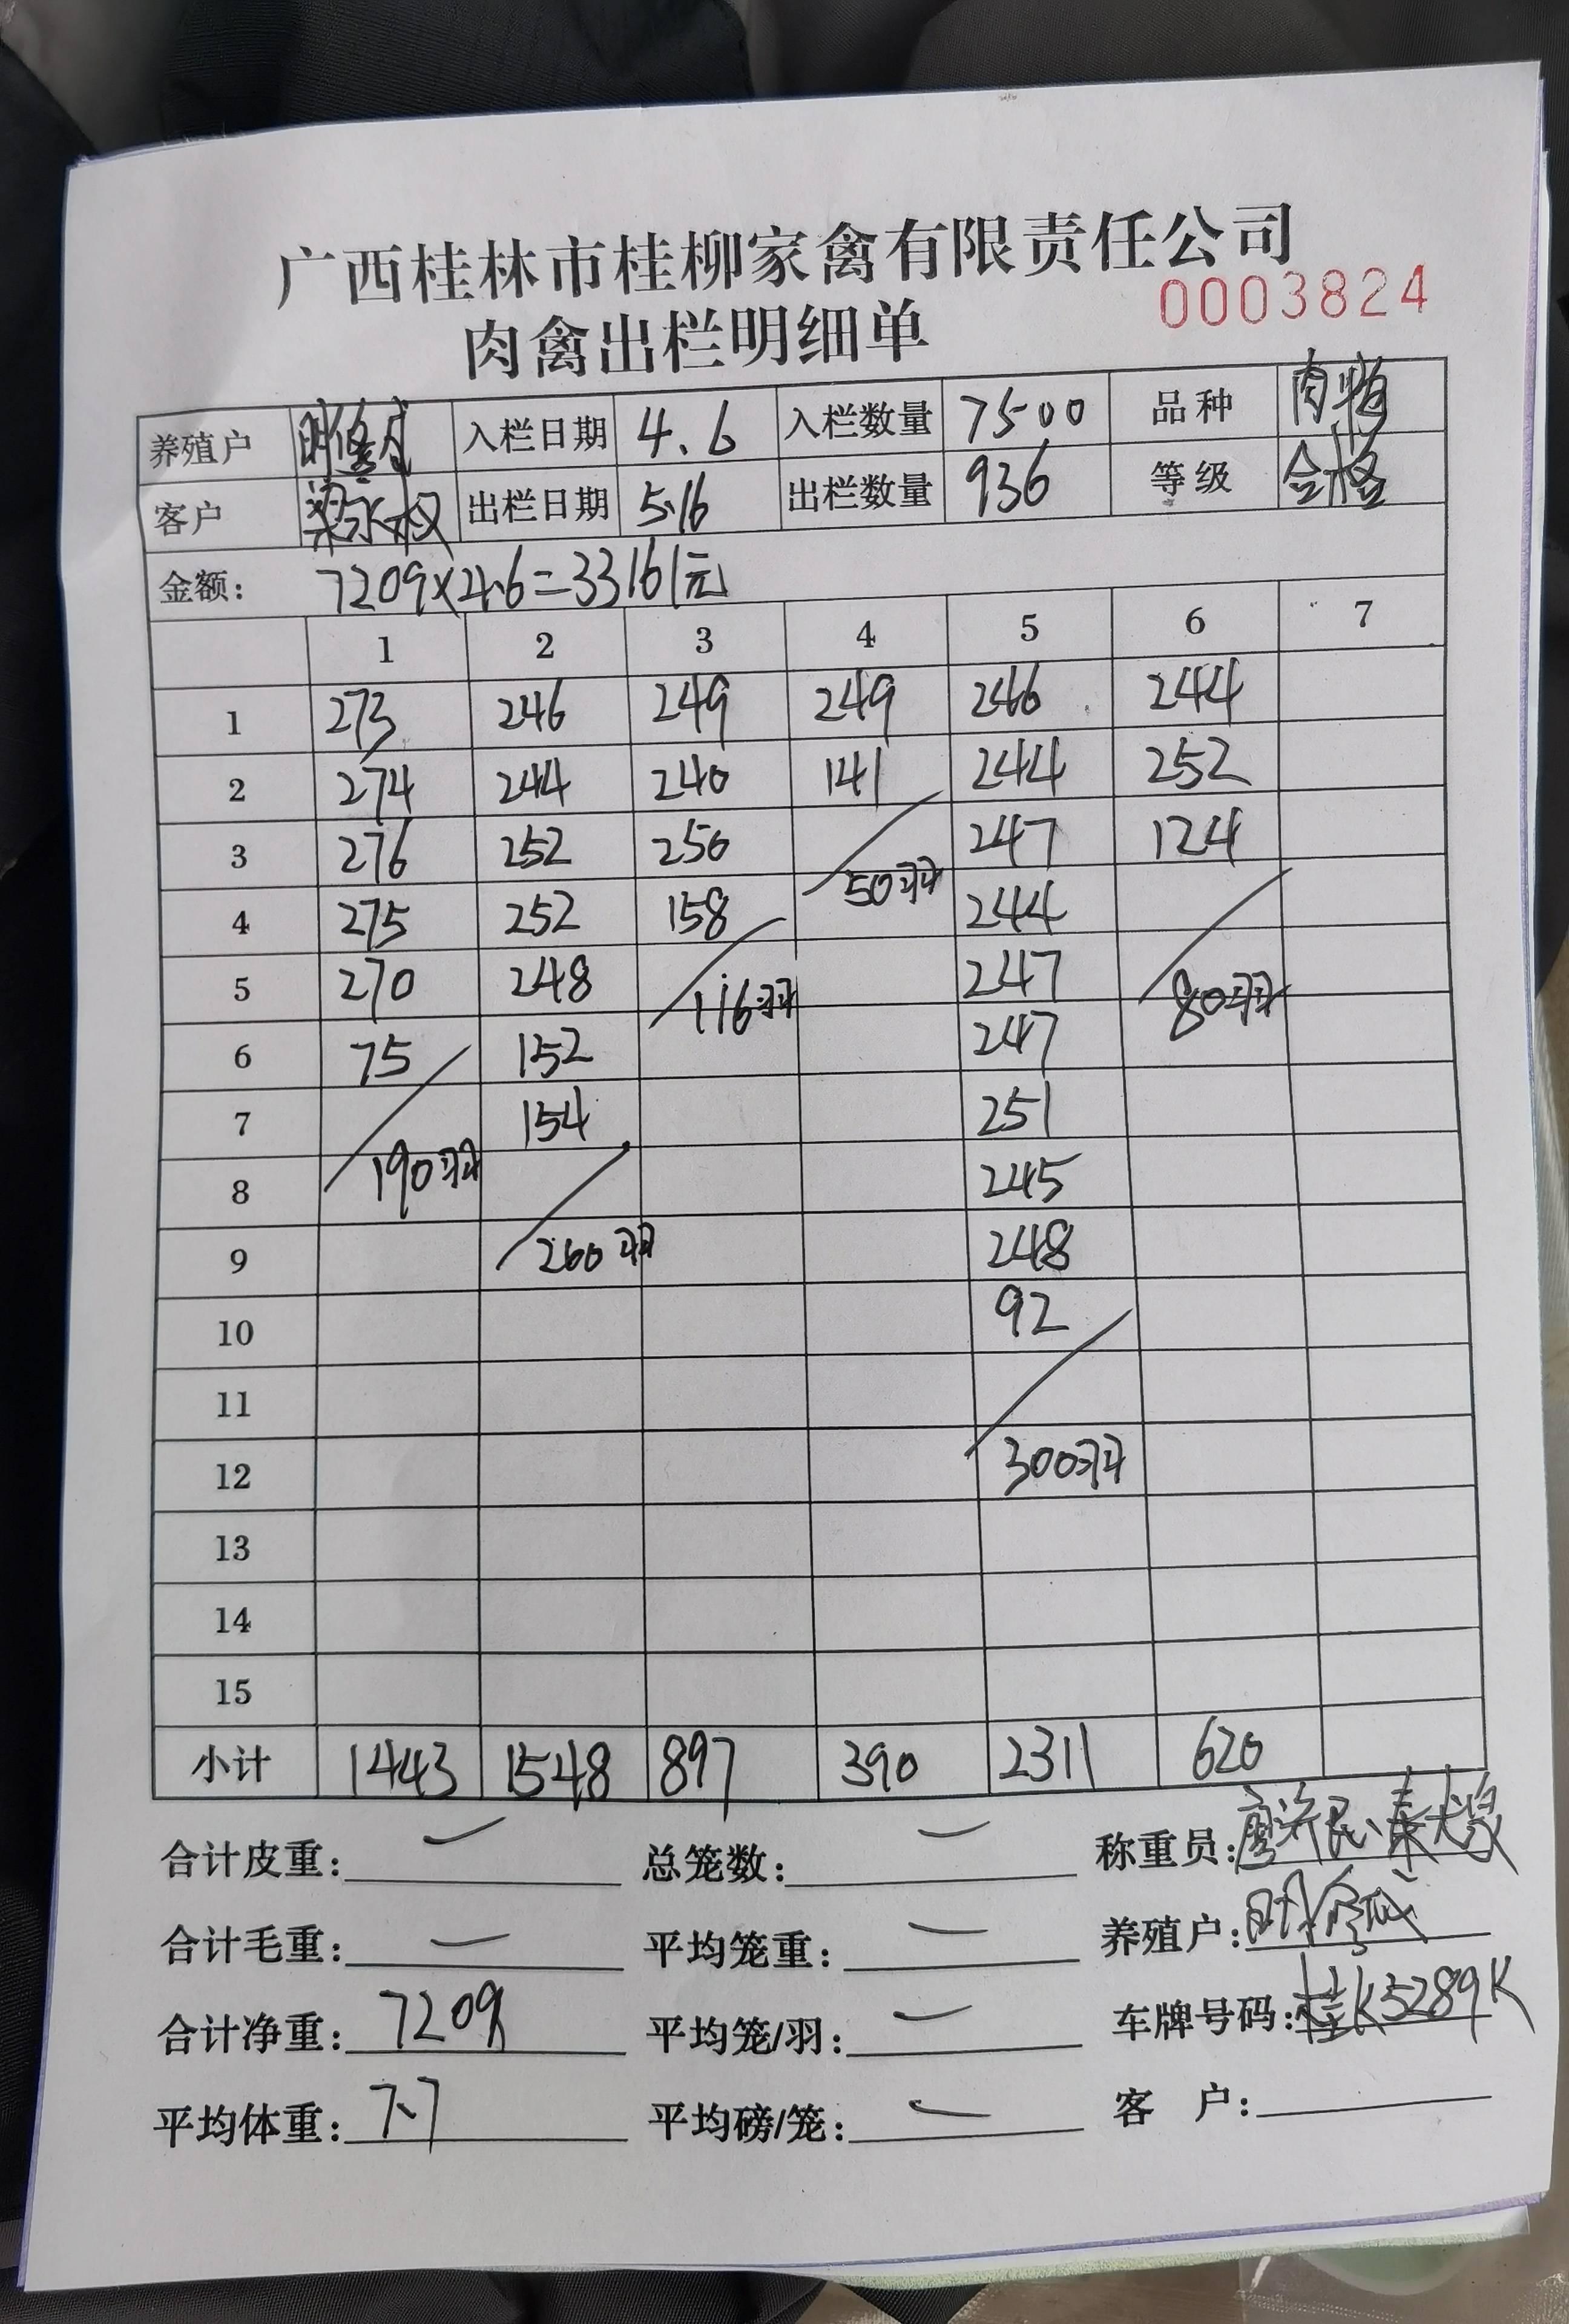 广西桂林市桂柳家禽有限责任公司
0003824
肉禽出栏明细单
养殖户 入栏日期 4.6 入栏数量 7500 品种 肉鸭
客户 梁永权 出栏日期 5.16 出栏数量 936 等级 合格
金额: 7209×4.6=33161元
1 2 3 4 5 6 7
1 273 246 249 249 246 244
2 274 244 240 141 244 252
3 276 252 250 247 124
50羽
4 275 252 158 244
5 270 248 116羽 247 80羽
6 75 152 247
7 154 251
8 190羽 245
9 260羽 248
10 92
11
12 300羽
13
14
15
小计 1443 1548 897 390 2311 620
合计皮重: — 总笼数: — 称重员:
合计毛重: — 平均笼重: — 养殖户:
合计净重: 7209 平均笼/羽: — 车牌号码: 桂K5289K
平均体重: 7.7 平均磅/笼: — 客 户: